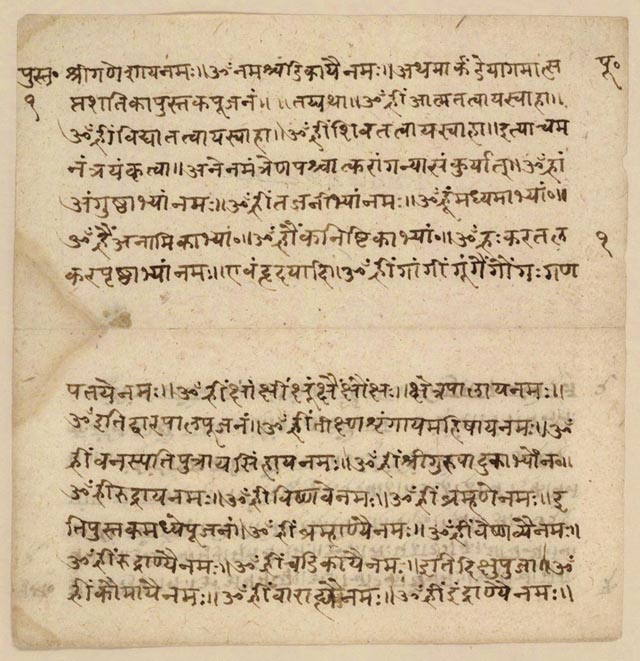 पुस्त॰ श्रीगणेशायनमः॥ॐनमश्चंडिकायैनमः॥अथमार्कंडेयागमात्स पू॰
१ प्तशतिकापुस्तकपूजनं॥॥तद्यथा॥ॐह्रींआत्मतत्वायस्वाहा॥
ॐह्रींविद्यातत्वायस्वाहा॥ॐह्रींशिवतत्वायस्वाहा॥इत्याचम
नंत्रयंकृत्वा॥अनेनमंत्रेणपश्चात्करांगन्यासंकुर्यात्॥ॐह्रां
अंगुष्ठाभ्यांनमः॥ॐह्रींतर्जनीभ्यांनमः॥ॐह्रूंमध्यमाभ्यां॰॥
ॐह्रैंअनामिकाभ्यां॰॥ॐह्रौंकनिष्टिकाभ्यां॰॥ॐह्रःकरतल १
करपृष्ठाभ्यांनमः॥एवंहृदयादि॥ॐह्रींगांगींगूंगैंगौंगःगण
पतयेनमः॥ॐह्रींक्षांक्षींक्षूंक्षैंक्षौंक्षः॥क्षेत्रपालायनमः॥
ॐइतिद्वारपालपूजनं॥ॐह्रींतीक्ष्णशृंगायमहिषायनमः॥ॐ
ह्रींवनस्पतिपुत्रायसिंहायनमः॥ॐह्रींश्रीगुरुपादुकाभ्योंनमः॥
ॐह्रींरुद्रायनमः॥ॐह्रींविष्णवेनमः॥ॐह्रींब्रह्मणेनमः॥इ
तिपुस्तकमध्येपूजनं॥ॐह्रींब्रम्हाण्यैनमः॥ॐह्रींवैष्णव्यैनमः॥
ॐह्रींरुद्राण्यैनमः॥ॐह्रींचंडिकायैनमः॥इतिदिक्षुपुजा॥ॐ
ह्रींकौमार्यैनमः॥ॐह्रींवाराह्यैनमः॥ॐह्रींइंद्राण्यैनमः॥